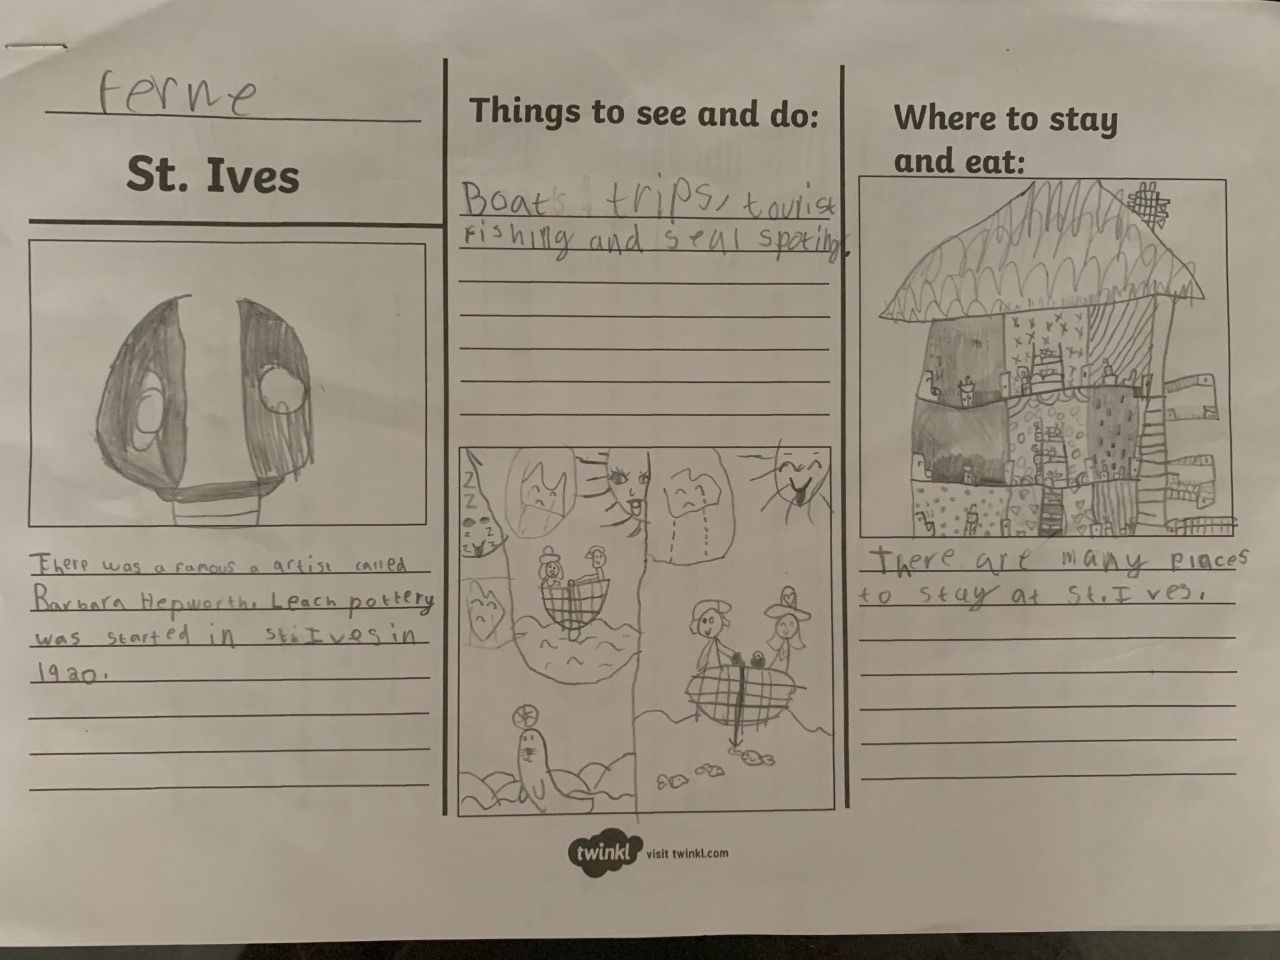 Ferne
St. Ives
There was a famous a artist called
Barbara Hepworth. Leach pottery
was started in st. Ives in
1920.
Things to see and do:
Boat trips, tourist
fishing and seal spoting.
Z
Z
Z
Z
Z
Where to stay
and eat:
There are many places
to stay at St. Ives.
twinkl visit twinkl.com